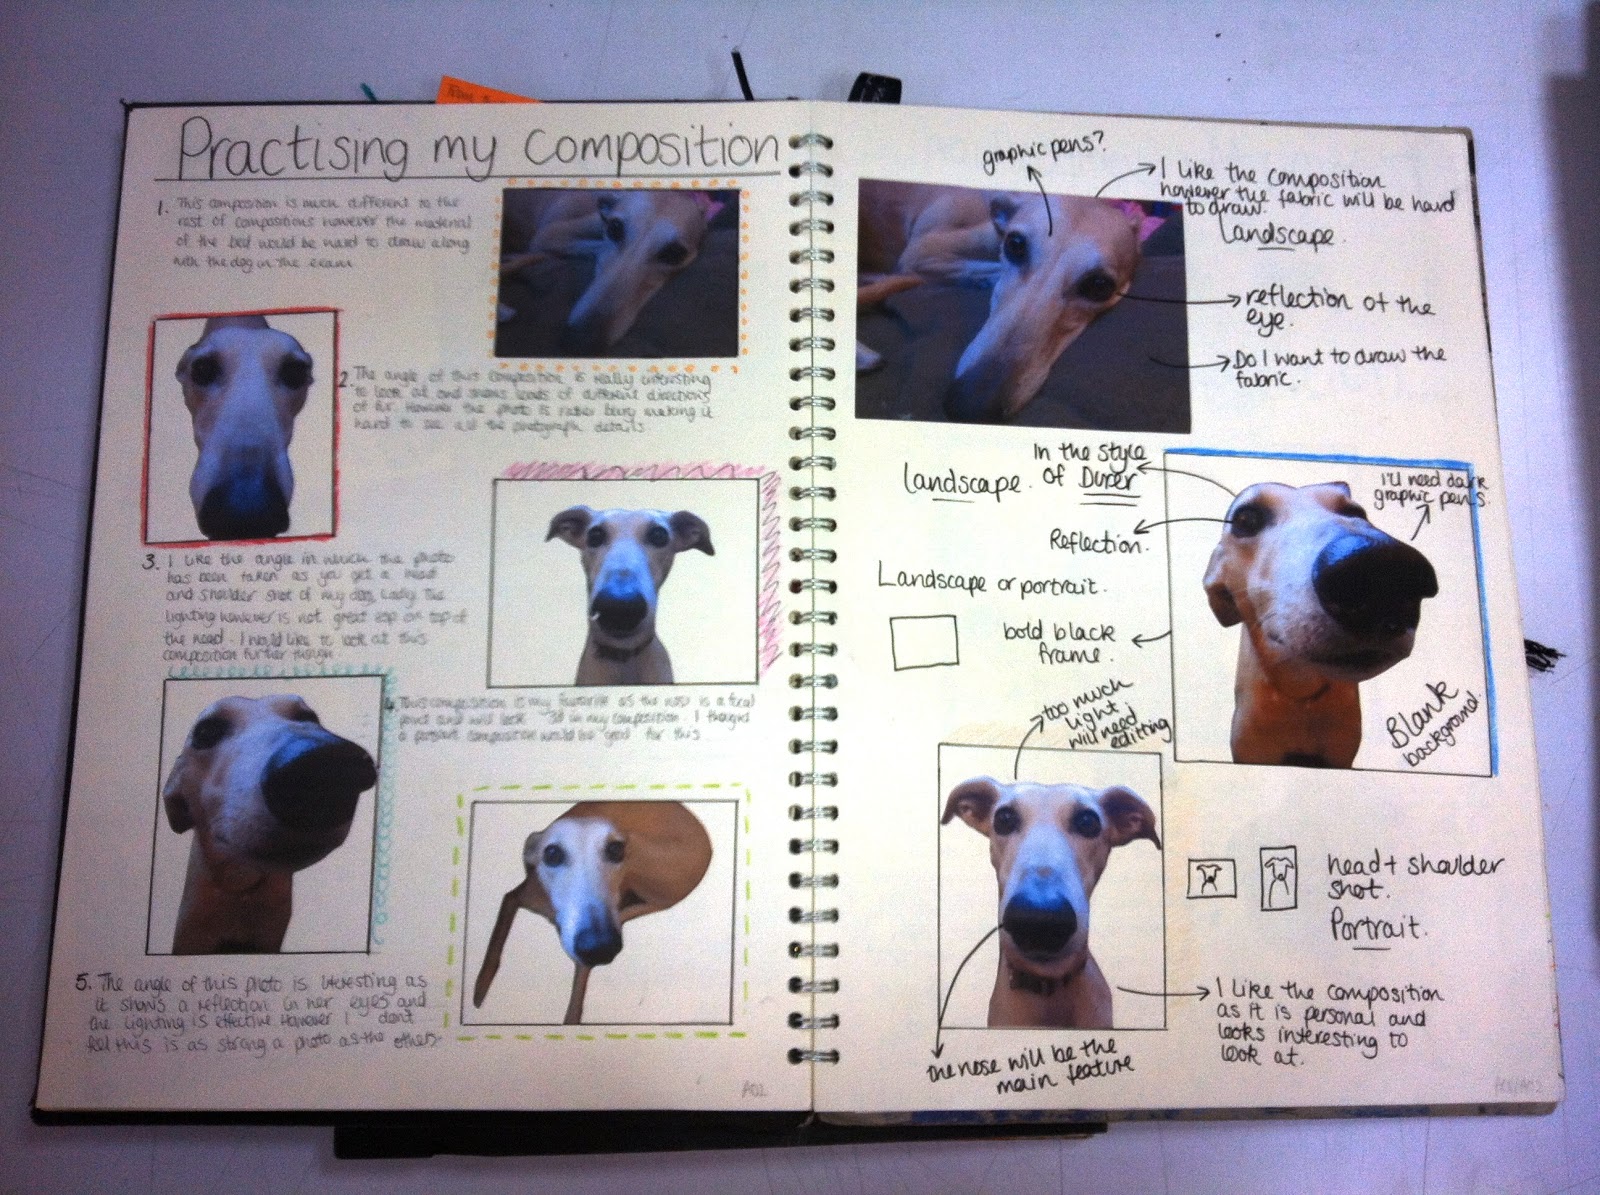 Practising my composition
1. This composition is much different to the
rest of compositions however the material
of the bed would be hard to draw along
with the dog in the exam
2. The angle of this composition is really interesting
to look at and shows loads of different directions
of fur. However the photo is rather blury making it
hard to see all the photograph details.
3. I like the angle in which the photo
has been taken as you get a head
and shoulder shot of my dog, Lady. The
lighting however is not great esp on top of
the head. I would like to look at this
composition further though.
4. This composition is my favourite as the nose is a focal
point and will look "3d" in my composition. I thought
a portrait composition would be good for this.
5. The angle of this photo is interesting as
it shows a reflection in her eyes and
the lighting is effective However I don't
feel this is as strong a photo as the others.
A02
graphic pens?
I like the composition
however the fabric will be hard
to draw.
Landscape.
reflection of the
eye.
Do I want to draw the
fabric.
In the style
of Durer
landscape.
I'll need dark
graphic pens.
Reflection.
Landscape or portrait.
bold black
frame.
Blank
background.
too much
light
will need
editting
head + shoulder
shot.
Portrait.
I like the composition
as it is personal and
looks interesting to
look at.
the nose will be the
main feature